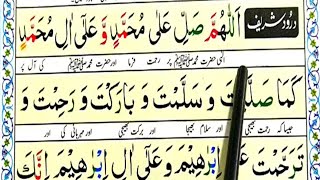 درود شریف
اَللّٰهُمَّ صَلِّ عَلٰی مُحَمَّدٍ وَّ عَلٰٓی اٰلِ مُحَمَّدٍ
الٰہی حضرت محمد ﷺ پر رحمت فرما اور حضرت محمد ﷺ کی آل پر
كَمَا صَلَّيْتَ وَ سَلَّمْتَ وَ بَارَكْتَ وَ رَحِمْتَ وَ
جیسا کہ رحمت بھیجی اور سلام بھیجا اور برکت بھیجی اور مہربانی کی اور
تَرَحَّمْتَ عَلٰٓی اِبْرٰهِیْمَ وَ عَلٰٓی اٰلِ اِبْرٰهِیْمَ اِنَّكَ